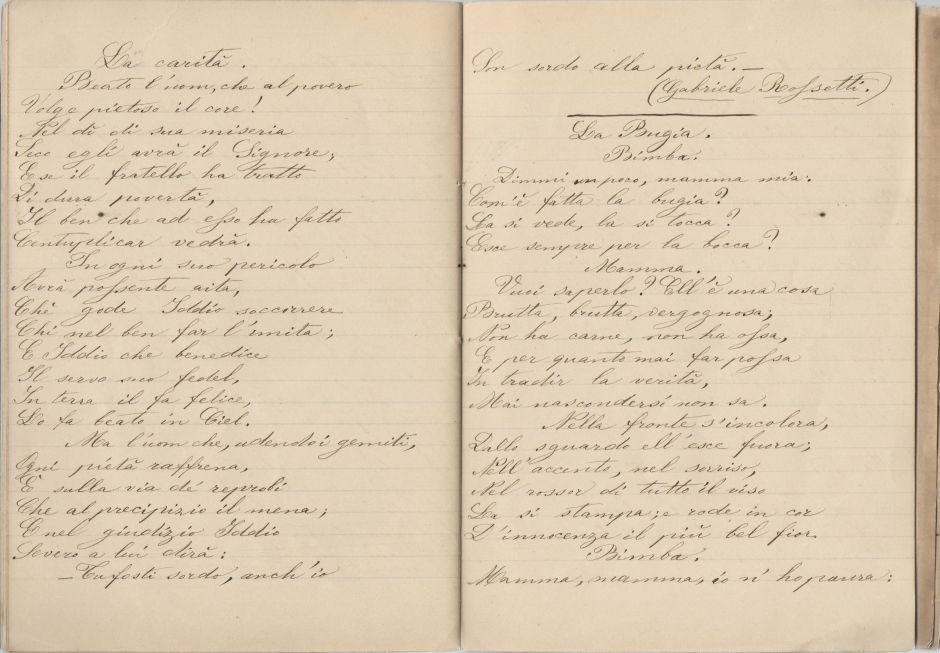 La carità.
Beato l'uom, che al povero
Volge pietoso il core!
Nel dì di sua miseria
Seco egli avrà il Signore;
E se il fratello ha tratto
Di dura povertà,
Il ben che ad esso ha fatto
Centuplicar vedrà.
In ogni suo pericolo
Avrà possente aita,
Chè gode Iddio soccorrere
Chi nel ben far l'imita;
E Iddio che benedice
Il servo suo fedel,
In terra il fa felice,
Lo fa beato in Ciel.
Ma l'uom che, udendo i gemiti,
Ogni pietà raffrena,
È sulla via dé reprobi
Che al precipizio il mena;
E nel giudizio Iddio
Severo a lui dirà:
— Tu fosti sordo, anch'io
Son sordo alla pietà. —
(Gabriele Rossetti.)
La Bugia.
Bimba.
Dimmi un poco, mamma mia:
Com'è fatta la bugia?
La si vede, la si tocca?
Esce sempre per la bocca?
Mamma.
Vuoi saperlo? Ell'è una cosa
Brutta, brutta, vergognosa;
Non ha carne, non ha ossa,
E per quanto mai far possa
In tradir la verità,
Mai nascondersi non sa.
Nella fronte s'incolora,
Dallo sguardo ell'esce fuora;
Nell'accento, nel sorriso,
Nel rossor di tutto il viso
La si stampa; e rode in cor
L'innocenza il più bel fior.
Bimba.
Mamma, mamma, io n'ho paura: